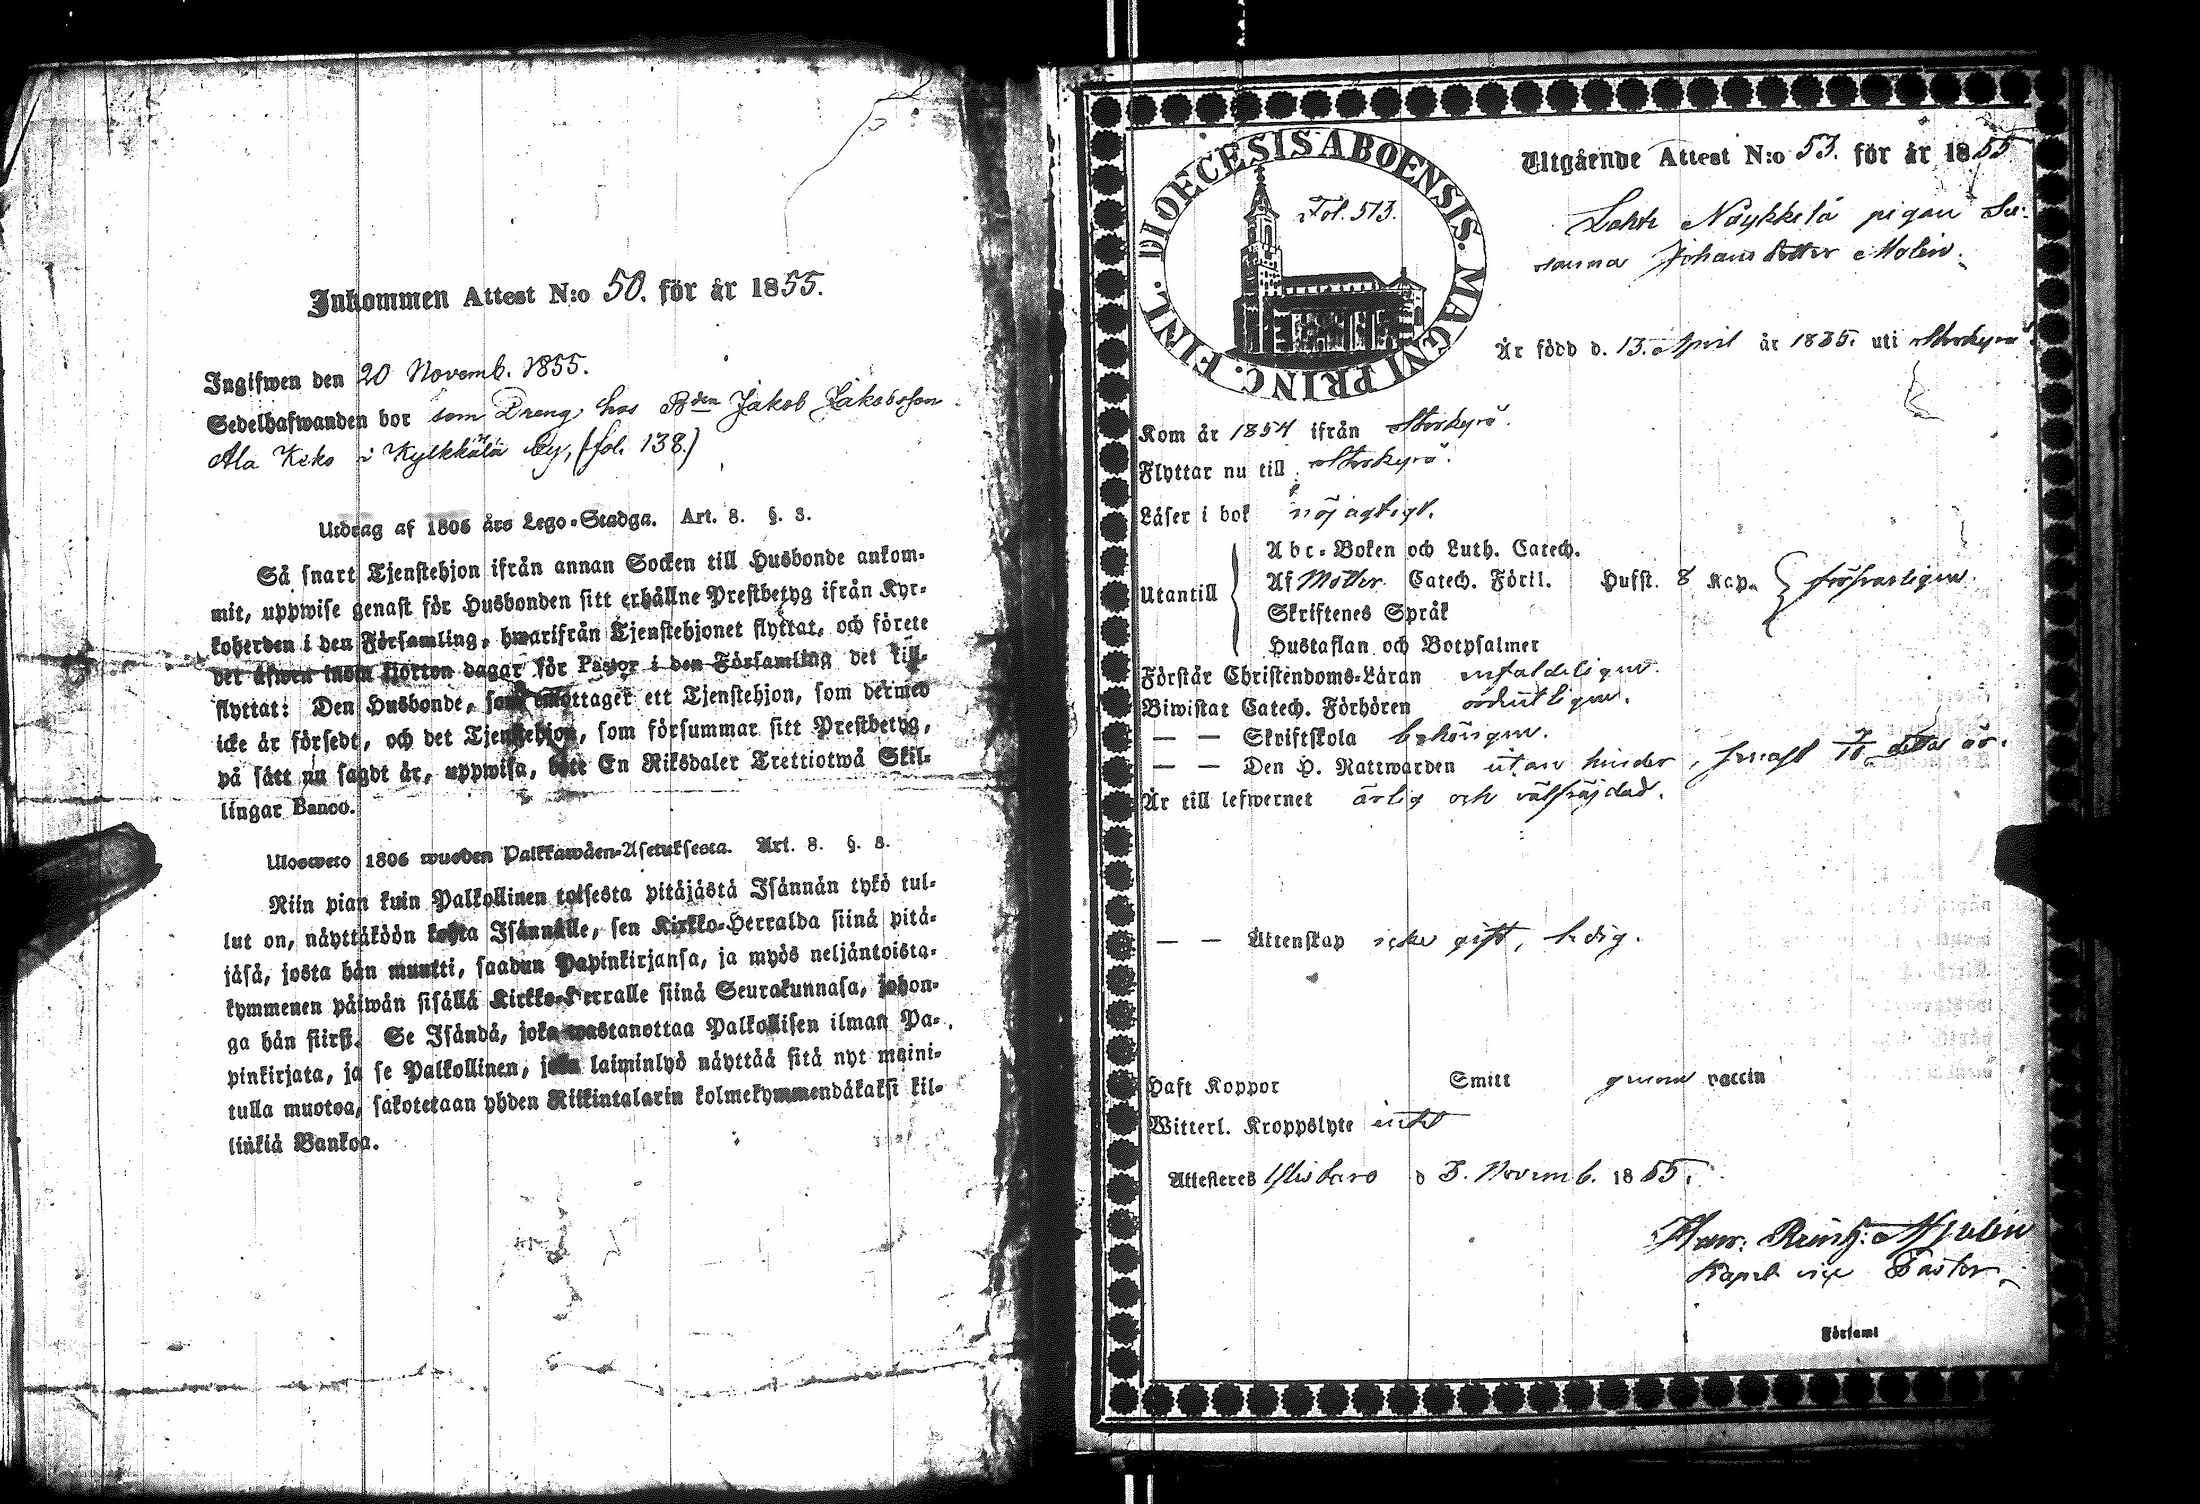 Inkommen Attest N:o 50. för år 1855.
Ingifwen den 20 Novemb. 1855.
Sedelhafwanden bor som Dreng hos Bden Jakob Jakobsson
Ala Keko i Kylkkälä by, (fol. 138.)
Utdrag af 1806 års Lego-Stadga. Art. 8. §. 3.
Så snart Tjenstehjon ifrån annan Socken till Husbonde ankom-
mit, uppwise genast för Husbonden sitt erhållne Prestbetyg ifrån Kyr-
koherden i den Församling, hwarifrån Tjenstehjonet flyttat, och förete
det äfwen inom fjorton dagar för Pastor i den Församling det till-
flyttat: Den Husbonde, som emottager ett Tjenstehjon, som dermed
icke är försedt, och det Tjenstehjon, som försummar sitt Prestbetyg,
på sätt nu sagdt är, uppwisa, böte En Riksdaler Trettiotwå Skil-
lingar Banco.
Ulosweto 1806 wuoden Palkkawäen-Asetuksesta. Art. 8. §. 3.
Niin pian kuin Palkollinen toisesta pitäjästä Isännän tykö tul-
lut on, näyttäköön kohta Isännälle, sen Kirkko-Herralda siinä pitä-
jäsä, josta hän muutti, saadun Papinkirjansa, ja myös neljäntoista-
kymmenen päiwän sisällä Kirkko-Herralle siinä Seurakunnasa, johon-
ga hän siirsi. Se Isändä, joka wastanottaa Palkollisen ilman Pa-
pinkirjata, ja se Palkollinen, joka laiminlyö näyttää sitä nyt maini-
tulla muotoa, sakotetaan yhden Riikintalarin kolmekymmendäkaksi kil-
linkiä Bankoa.
DIOECESIS ABOENSIS. MAGNI PRINC. FINL.
Fol. 513.
Utgående Attest N:o 53. för år 1855
Lahti Näykkilä pigan Su-
sanna Johansdotter Molin.
Är född d. 13. April år 1835. uti Storkyro
Kom år 1854 ifrån Storkyrö.
Flyttar nu till Storkyrö.
Läser i bok nöjagtigt.
Utantill
Abc-Boken och Luth. Catech.
Af Möller Catech. Förkl. Husst. 8 Kap. försvarligen.
Skriftenes Språk
Hustaflan och Botpsalmer
Förstår Christendoms-Läran enfaldeligen.
Biwistat Catech. Förhören ordentligen.
— — Skriftskola behörigen.
— — Den H. Nattwarden utan hinder, senast detta år.
Är till lefwernet ärlig och välfräjdad.
— — Ättenskap icke gift, ledig.
Haft Koppor Smitt genom vaccin
Witterl. Kroppslyte intet
Attesteras Ylistaro d 3. Novemb. 1855.
Kapel. vice Pastor
Församl